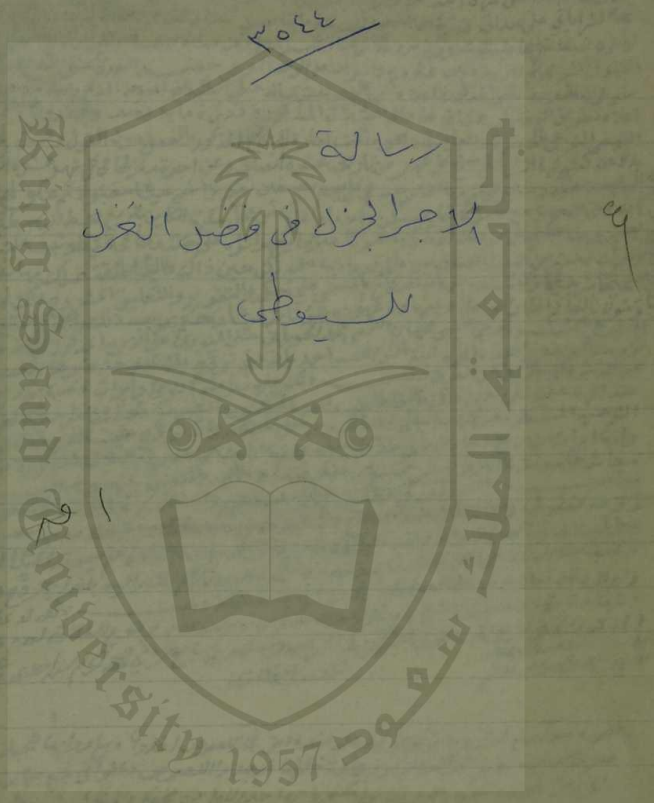 ٣٥٤٤
رسالة
الاجر الجزل فى فضل الغزل
للسيوطى
King Saud University 1957
جامعة الملك سعود